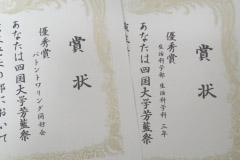 賞状
優秀賞
生活科学部 生活科学科 三年
あなたは四国大学芳藍祭
賞状
優秀賞
バトントワリング同好会
あなたは四国大学芳藍祭
において